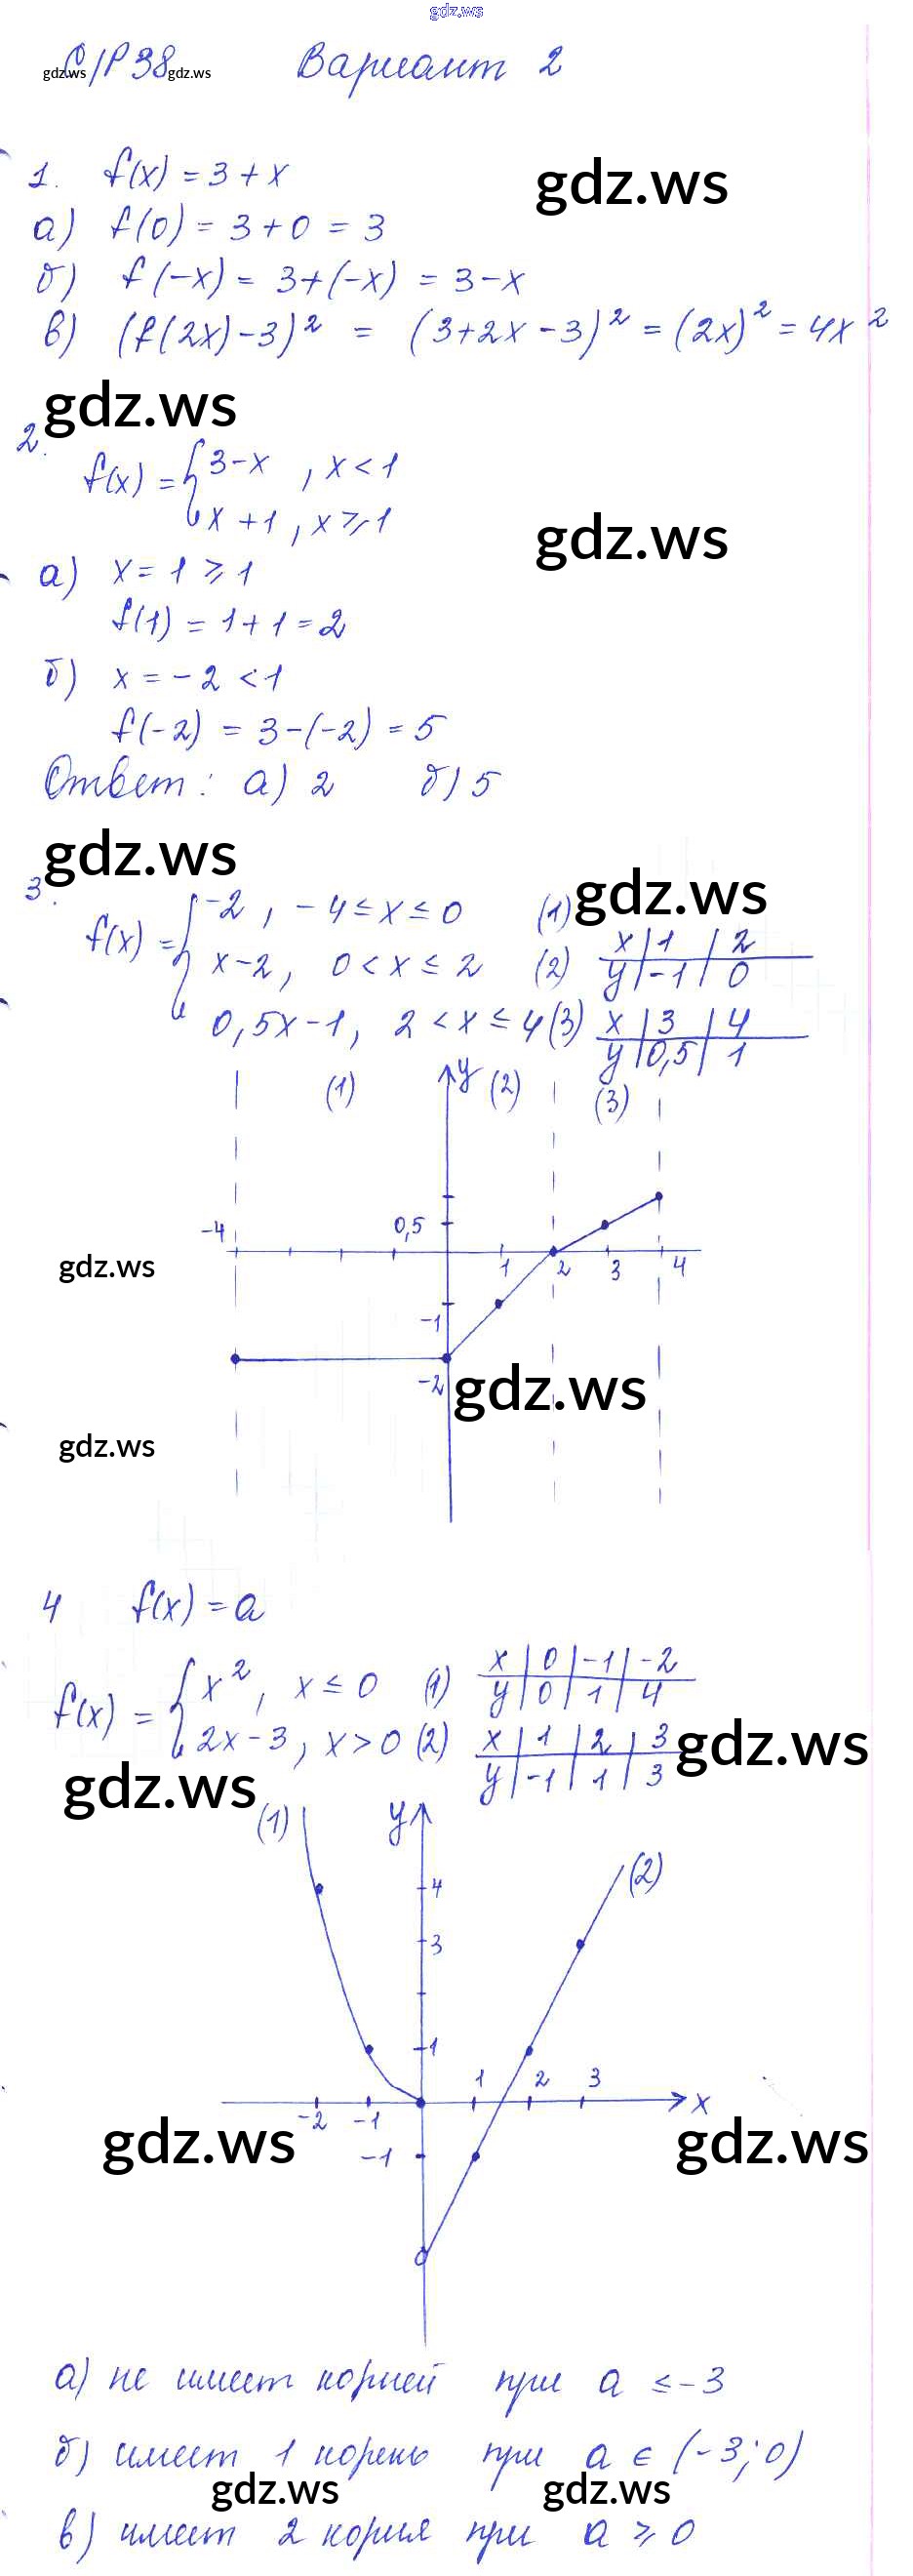 gdz.ws
С/Р 38 Вариант 2
gdz.ws gdz.ws
1. f(x) = 3 + x
gdz.ws
а) f(0) = 3 + 0 = 3
б) f(-x) = 3+(-x) = 3-x
в) (f(2x)-3)² = (3+2x-3)² = (2x)² = 4x²
gdz.ws
2. f(x) = { 3-x , x < 1
x + 1 , x ⩾ 1
gdz.ws
а) x = 1 ⩾ 1
f(1) = 1 + 1 = 2
б) x = -2 < 1
f(-2) = 3-(-2) = 5
Ответ: а) 2 б) 5
gdz.ws
gdz.ws
3. f(x) = { -2, -4 ≤ x ≤ 0 (1)
x-2, 0 < x ≤ 2 (2) x | 1 | 2
y | -1 | 0
0,5x-1, 2 < x ≤ 4 (3) x | 3 | 4
y | 0,5 | 1
(1) y (2) (3)
-4 0,5
gdz.ws
1 2 3 4
-1
-2
gdz.ws
gdz.ws
4 f(x) = a
f(x) = { x², x ≤ 0 (1) x | 0 | -1 | -2
y | 0 | 1 | 4
2x-3, x > 0 (2) x | 1 | 2 | 3
y | -1 | 1 | 3
gdz.ws
gdz.ws
(1) y (2)
4
3
1
1 2 3
-2 -1 x
-1
gdz.ws gdz.ws
а) не имеет корней при a ≤ -3
б) имеет 1 корень при a ∈ (-3; 0)
gdz.ws gdz.ws
в) имеет 2 корня при a ⩾ 0